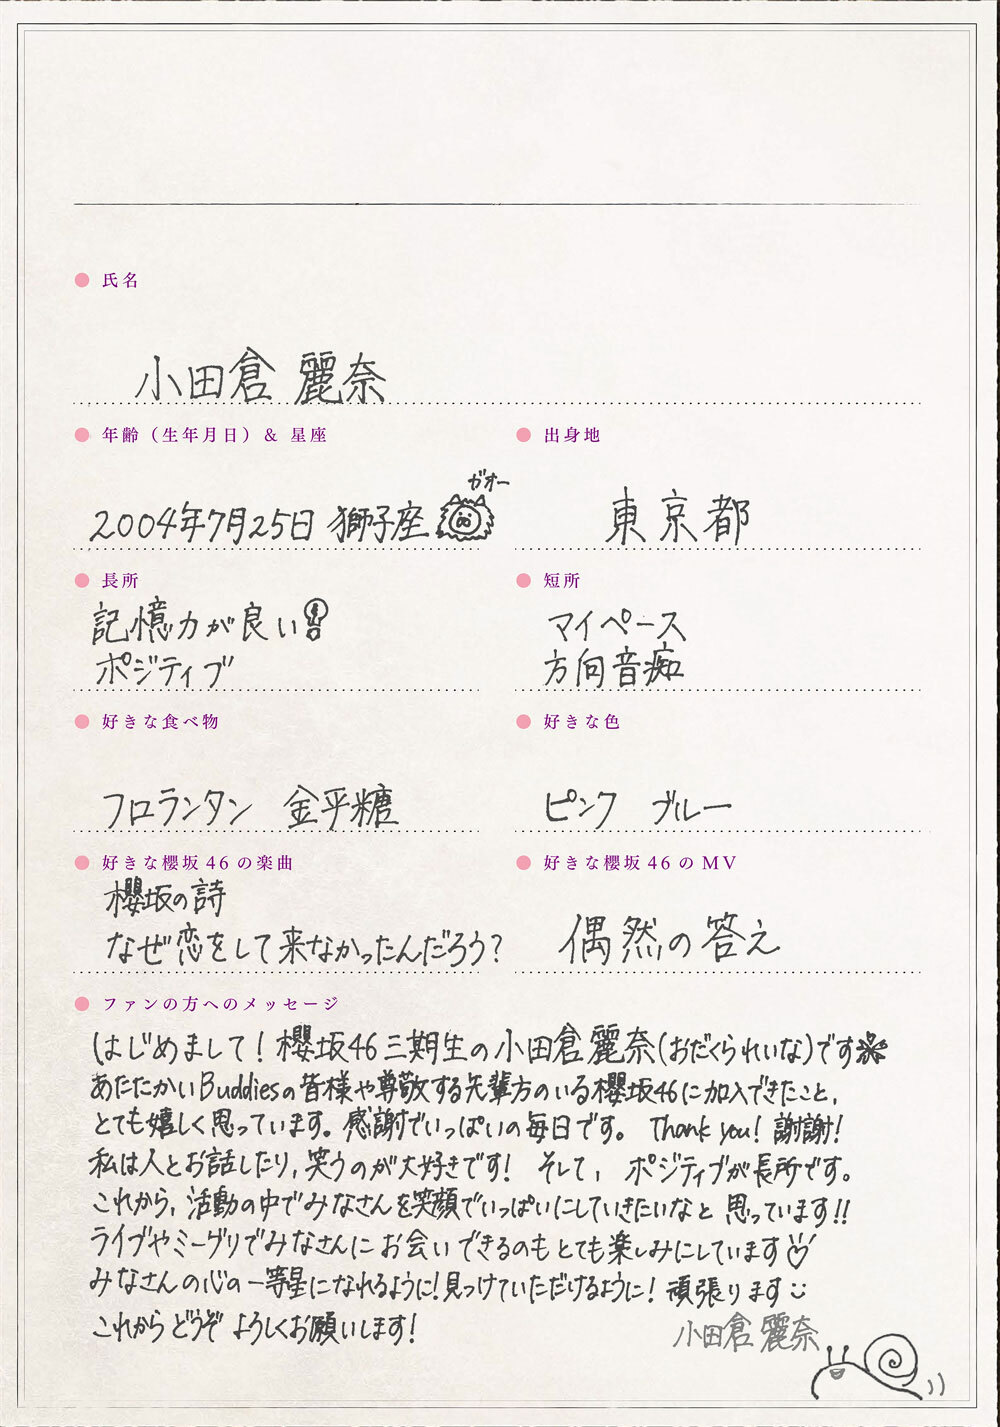 氏名
小田倉 麗奈
年齢（生年月日）& 星座
出身地
ガオー
2004年7月25日 獅子座
東京都
長所
短所
記憶力が良い
ポジティブ
マイペース
方向音痴
好きな食べ物
好きな色
フロランタン 金平糖
ピンク ブルー
好きな櫻坂46の楽曲
好きな櫻坂46のMV
櫻坂の詩
なぜ恋をして来なかったんだろう?
偶然の答え
ファンの方へのメッセージ
はじめまして! 櫻坂46三期生の小田倉麗奈(おだくられいな)です
あたたかいBuddiesの皆様や尊敬する先輩方のいる櫻坂46に加入できたこと,
とても嬉しく思っています。感謝でいっぱいの毎日です。 Thank you! 謝謝!
私は人とお話したり, 笑うのが大好きです! そして, ポジティブが長所です。
これから, 活動の中でみなさんを笑顔でいっぱいにしていきたいなと 思っています!!
ライブやミーグリでみなさんに お会いできるのもとても楽しみにしています
みなさんの心の一等星になれるように! 見つけていただけるように! 頑張ります
これから どうぞ よろしくお願いします!
小田倉 麗奈